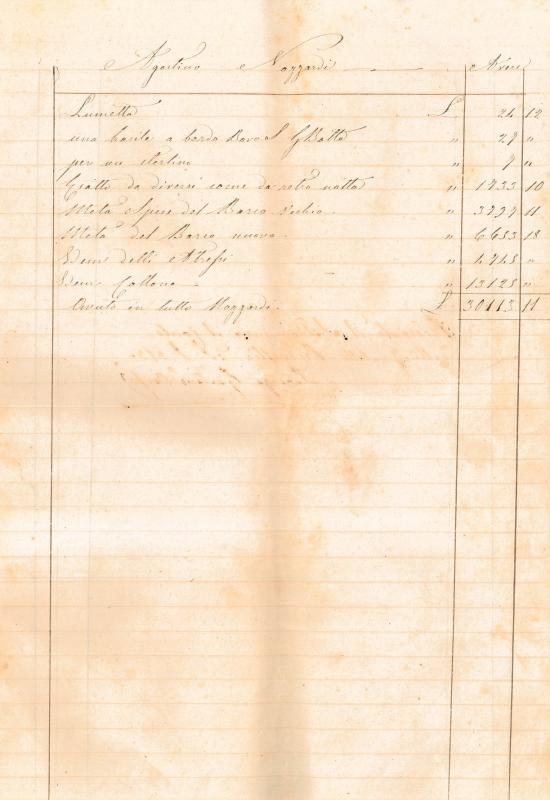 Agostino Nozzardi Avere
Lumetta £ 24 12
una barile a bordo Bovo S. GBatta " 29 "
per un sterlino " 9 "
da diversi come da retro notta " 1933 10
Metà Spese del Barco Vechio. " 3797 11
Metà del Barco nuovo. " 6653 18
Idem delli Attressi "
Idem Cottone " 13125 "
Avuto in tutto Nozzardi. £ 30113 11